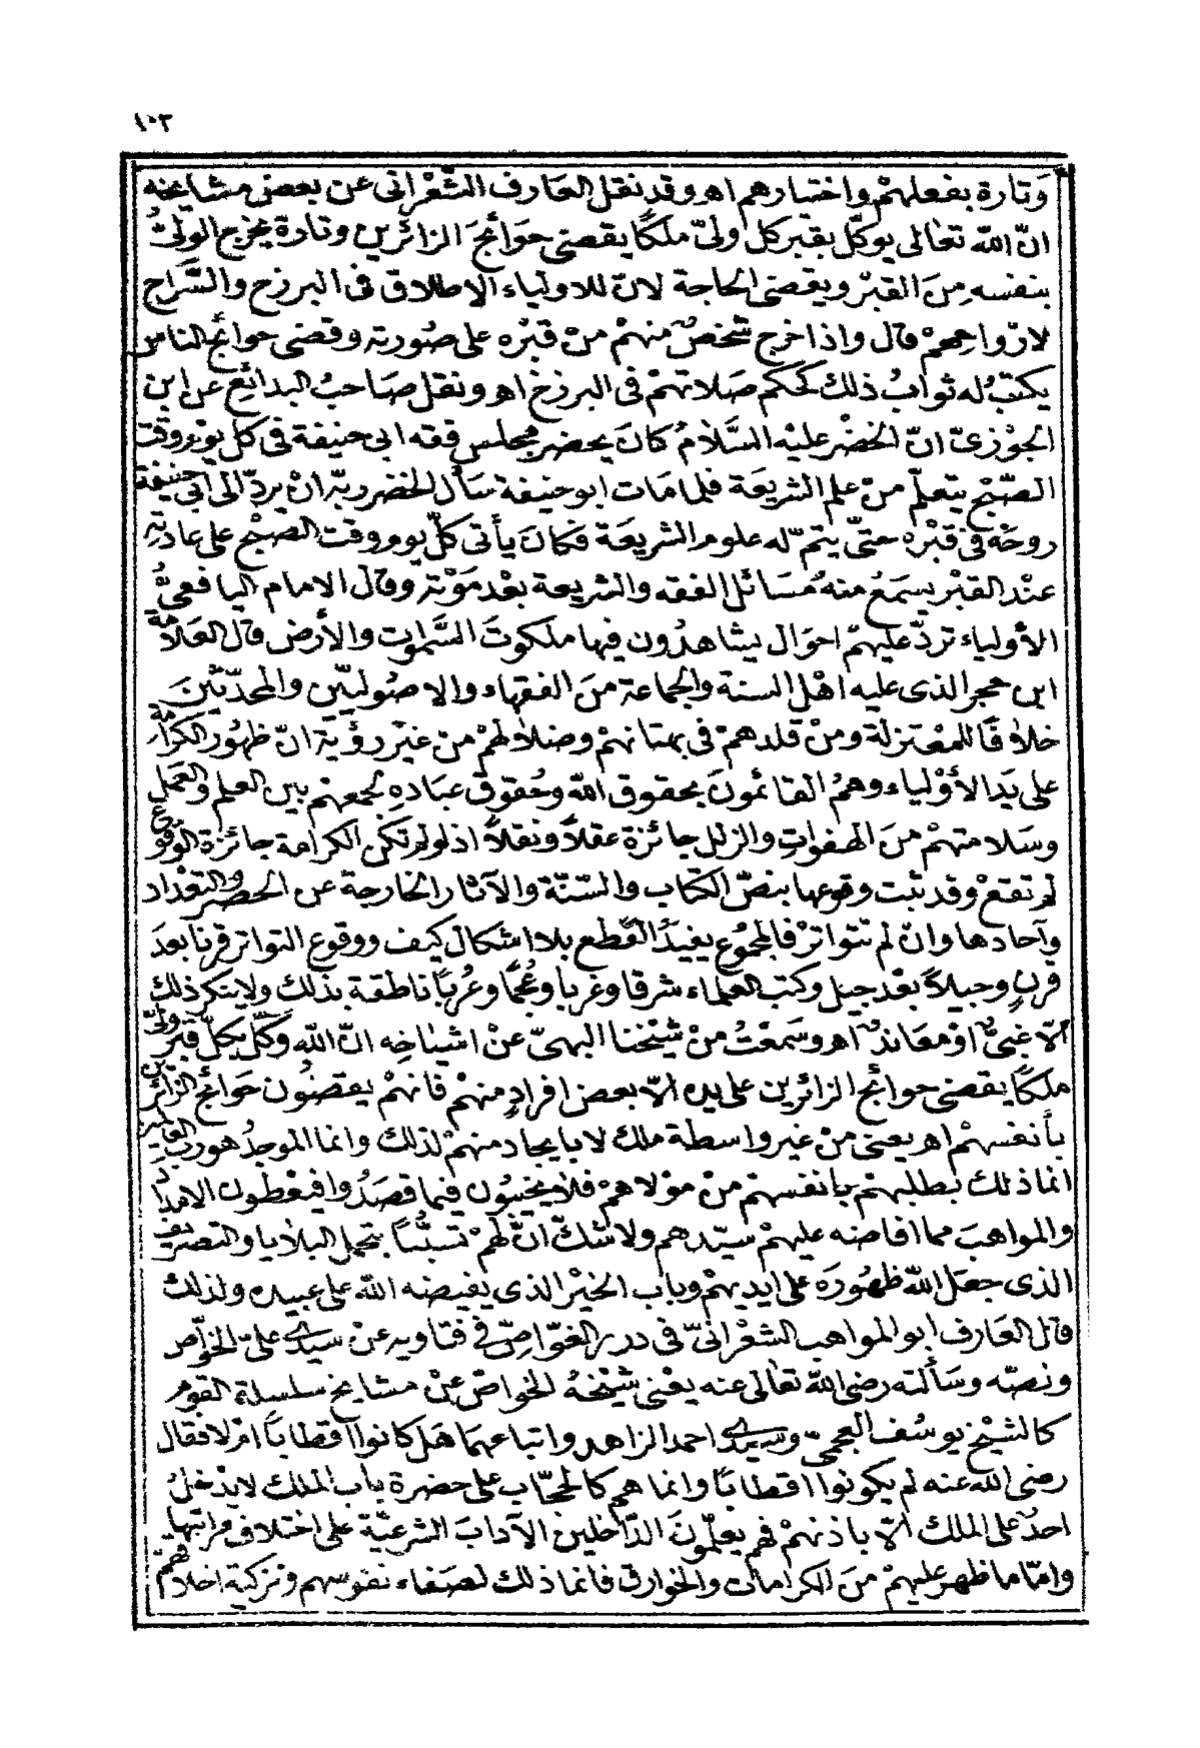 ١٠٣
وَتارة بفعلهمْ واختيارهم اهـ وقد نقل العارف الشّعْرانى عن بعض مشايخه
انّ اللّه تعالى يوكّل بقبر كل ولىّ ملكًا يقضى حوَائجَ الزائرين وتارة يخرج الولىُّ
بنفسه مِنَ القبْر ويقضى الحاجة لانّ للاولياء الاطلاق فى البرزخ والسَّراح
لارْواحهمْ قال واذا خرج شخصٌ منهمْ منْ قبْره على صُورته وقضى حوائج الناس
يكتبُ له ثوابُ ذلك كحكم صَلاتهمْ فى البرزخ اهـ ونقل صَاحبُ البدائع عن ابن
الجوْزىّ انّ الخضْر عليْه السَّلامُ كانَ يحضر مجلس فقه ابى حنيفة فى كل يوم وقت
الصّبْح يتعلّم منْ علم الشريعَة فلما مَات ابو حنيفة سَأل الخضر ربّه انْ يردّ الى ابى حنيفة
روحَه فى قبْره حتىّ يتمّ له علوم الشريعَة فكانَ يأتى كلّ يوم وقت الصبْح على عادته
عنْد القبْر يسمَعُ منهُ مَسَائل الفقه والشريعة بعْد موْته وقال الامام اليافعىُّ
الأولياء تردّ عليهمْ احوَال يشاهدُون فيها ملكوتَ السَّموات والأرض قال العَلاّمة
ابن حجر الذى عليه اهْل السنة والجماعة منَ الفقهاء والاصُوليّين والمحدّثينَ
خلافًا للمعْتزلة ومنْ قلدهمْ فى بهتانهمْ وضلالهمْ من غيْر رؤية انّ ظهُور الكرامة
على يَد الأوْلياء وهمُ القائمونَ بحقوق اللّه وحُقوق عبَاده لجمعهم بين العلم والعَمل
وسَلامتهمْ منَ الهفوات والزلل جائزة عقلاً ونقلاً اذ لو لم تكن الكرامة جائزة الوُقوع
لم تقعْ وقد ثبت وقوعها بنصّ الكتاب والسّنّة والآثار الخارجة عن الحصْر والتعْداد
وآحادها وانْ لم تتواترْ فالمجموُع يفيدُ القطع بلا اشكال كيف ووقوع التواتر قرنا بعدَ
قرنٍ وجيلاً بعْد جيل وكتب العلماء شرقا وغربا وعُجمًا وعُربًا ناطقة بذلك ولا ينكر ذلك
الاّ غبىٌّ اوْ معَاندٌ اهـ وسَمعْتُ منْ شيْخنا البهىّ عنْ اشياخه انّ اللّه وكّل بكلّ قبْر ولىّ
ملكًا يقضى حوائج الزائرين على يده الاّ بعض افراد منهمْ فانهمْ يقضوُن حَوائج الزائرين
بأنفسهمْ اهـ يعنى منْ غير واسطة ملك لا بايجاد منهمْ لذلك وانما الموجدُ هو ربّ العالمين
انما ذلك بطلبهم بانفسهم منْ موْلاهمْ فلا يخيبُون فيما قصَدُوا فيعْطون الامدادَ
والمواهبَ مما افاضه عليهمْ سيّدهم ولا شكّ انّ لهمْ تسبُّبًا بتحمل البلايا والتصريف
الذى جعَل اللّه ظهُورَه على ايديهمْ وبابَ الخيْر الذى يفيضه اللّه على عبيده ولذلك
قال العَارف ابو المواهب الشعْرانىّ فى درر الغوّاصّ فى فتاويه عنْ سيدى علىّ الخوّاص
ونصّه وسَألته رضى اللّه تعالى عنه يعْنى شيْخهُ الخواص عنْ مشايخ سلسلة القوم
كالشيْخ يوسُف العجمىّ وسيدى احمد الزاهد واتباعهما هَل كانوا اقطابًا امْ لا فقال
رضى اللّه عنه لم يكونوا اقطابًا وانما هم كالحجّاب على حضرة باب الملك لا يدْخلُ
احدٌ على الملك الاّ باذنهمْ فهم يعلّمونَ الدّاخلين الآدابَ الشرعيّة على اختلاف مراتبها
وامّا ما ظهر عليهمْ منَ الكرامات والخوارق فانما ذلك لصَفاء نفوسهم وتزكية اخلاقهمْ